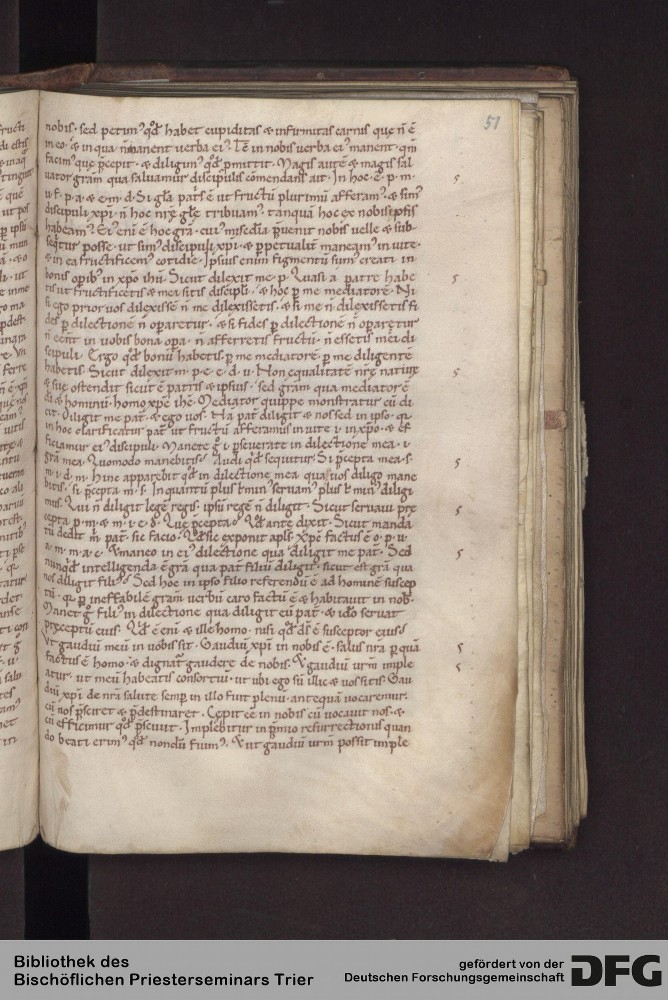 51
nobis. sed petim' qđ habet cupiditas & infirmitas carnis quę ñ ē
in eo. & in qua ñ manent verba ei'. Tē in nobis verba ei' manent. qm̄
facim' quę p̄cepit. & diligim' qđ pmittit. Magis autē & magis sal
uator gram̄ qua saluamur discipulis cōmendans ait. In hoc. ē. p. m.
u. f. p. a. & e. m. d. Si gla patris ē ut fructū plurimū afferam'. & sim'
discipuli xpi. ñ hoc nrę glę tribuam'. tanquā hoc ex nobis ipsis
habeam'. Ei' enī ē hoc gra. cui' misedia p̄uenit nobis velle & sub
seqtur posse. ut sim' discipuli xpi. & ppetualit maneam' in uite.
& in ea fructificem' cotidie. Ipsius enim figmentū sum' creati in
bonis opib' in xpo ihu. Sicut dilexit me. p. Quasi a patre habe
tis ut fructificetis & mea sitis discipli. & hoc p me mediatorē. Ni
si ego prior uos dilexissē ñ me dilexissetis. & si me ñ dilexissetis fi
des p dilectionē ñ oparetur. & si fides p dilectionē ñ oparetur
ñ eēnt in uobis bona opa. ñ afferretis fructū. ñ essetis mei di
scipuli. Ergo qđ bonū habetis. p me mediatorē. p me diligentē
habetis. Sicut dilexit. m. p. e. e. d. u. Non equalitatē nrę naturę
& suę ostendit sicut ē patris & ipsius. sed gram̄ qua mediator ē
di & hominū. homo xpc ihc. Mediator quippe monstratur cū di
cit. Diligit me pat. & ego uos. Nā pat diligit & nos sed in ipso. qa
in hoc clarificatur pat ut fructū afferamus in uite i. in xpo. & ef
ficiamur ei' discipuli. Manete g i. pseuerate in dilectione mea. i.
gra mea. Quomodo manebitis? Audi qđ sequitur. Si p̄cepta mea. s.
m. i. d. m. Hinc apparebit qđ in dilectione mea qua uos diligo mane
bitis. si p̄cepta m. s. In quantū plus ł min' seruam' plus ł min' diligi
mus. Qui ñ diligit legē regis. ipsū regē ñ diligit. Sicut seruaui prę
cepta p. m. & m. i. e. d. Quę p̄cepta? Qđ ante dixit. Sicut mandā
tū dedit m pat. sic facio. Qđ sic exponit apls. Xpc factus ē o. p. u.
a. m. m. a. c. & maneo in ei' dilectione qua diligit me pat. Sed
nunqđ intelligenda ē gra qua pat filiū diligit. sicut est gra qua
nos diligit fili'? Sed hoc in ipso filio referendū ē ad hominē suscep
tū. qa p ineffabilē gram̄ uerbū caro factū ē & habitauit in nob.
Manet g fili' in dilectione qua diligit eū pat. & ido seruat
pręceptū eius. Qđ ē enī & ille homo. nisi qđ ds ē susceptor eius?
Vt gaudiū meū in uobis sit. Gaudiū xpi in nobis ē. salus nra p quā
factus ē homo. & dignat gaudere de nobis. & gaudiū urm imple
atur. ut meū habeatis consortiū. ut ubi ego sū illic & uos sitis. Gau
diū xpi de nra salute semp in illo fuit plenū. antequā uocaremur.
cū nos p̄sciret & p̄destinaret. Cepit eē in nobis cū uocauit nos. &
cū efficimur qđ p̄sciuit. Implebitur in p̄mio resurrectionis quan
do beati erim' qđ nondū fuim'. & ut gaudiū urm possit imple
Bibliothek des
Bischöflichen Priesterseminars Trier
gefördert von der
Deutschen Forschungsgemeinschaft
DFG